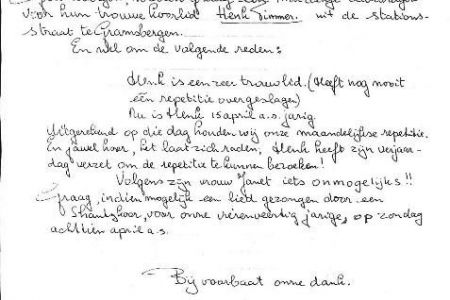 voor hun trouwe koorlid Henk Timmer. uit de stations-
straat te Gramsbergen.
En wel om de volgende reden:
Henk is een zeer trouw lid. (Heeft nog nooit
één repetitie overgeslagen)
Nu is Henk 15 april a.s. jarig.
Uitgerekend op die dag houden wij onze maandelijkse repetitie.
En jawel hoor, het laat zich raden, Henk heeft zijn verjaar-
dag verzet om de repetitie te kunnen bezoeken!
Volgens zijn vrouw Janet iets onmogelijks!!
Graag, indien mogelijk een lied gezongen door een
Shantykoor, voor onze vierenveertig jarige, op zondag
achttien april a.s.
Bij voorbaat onze dank.